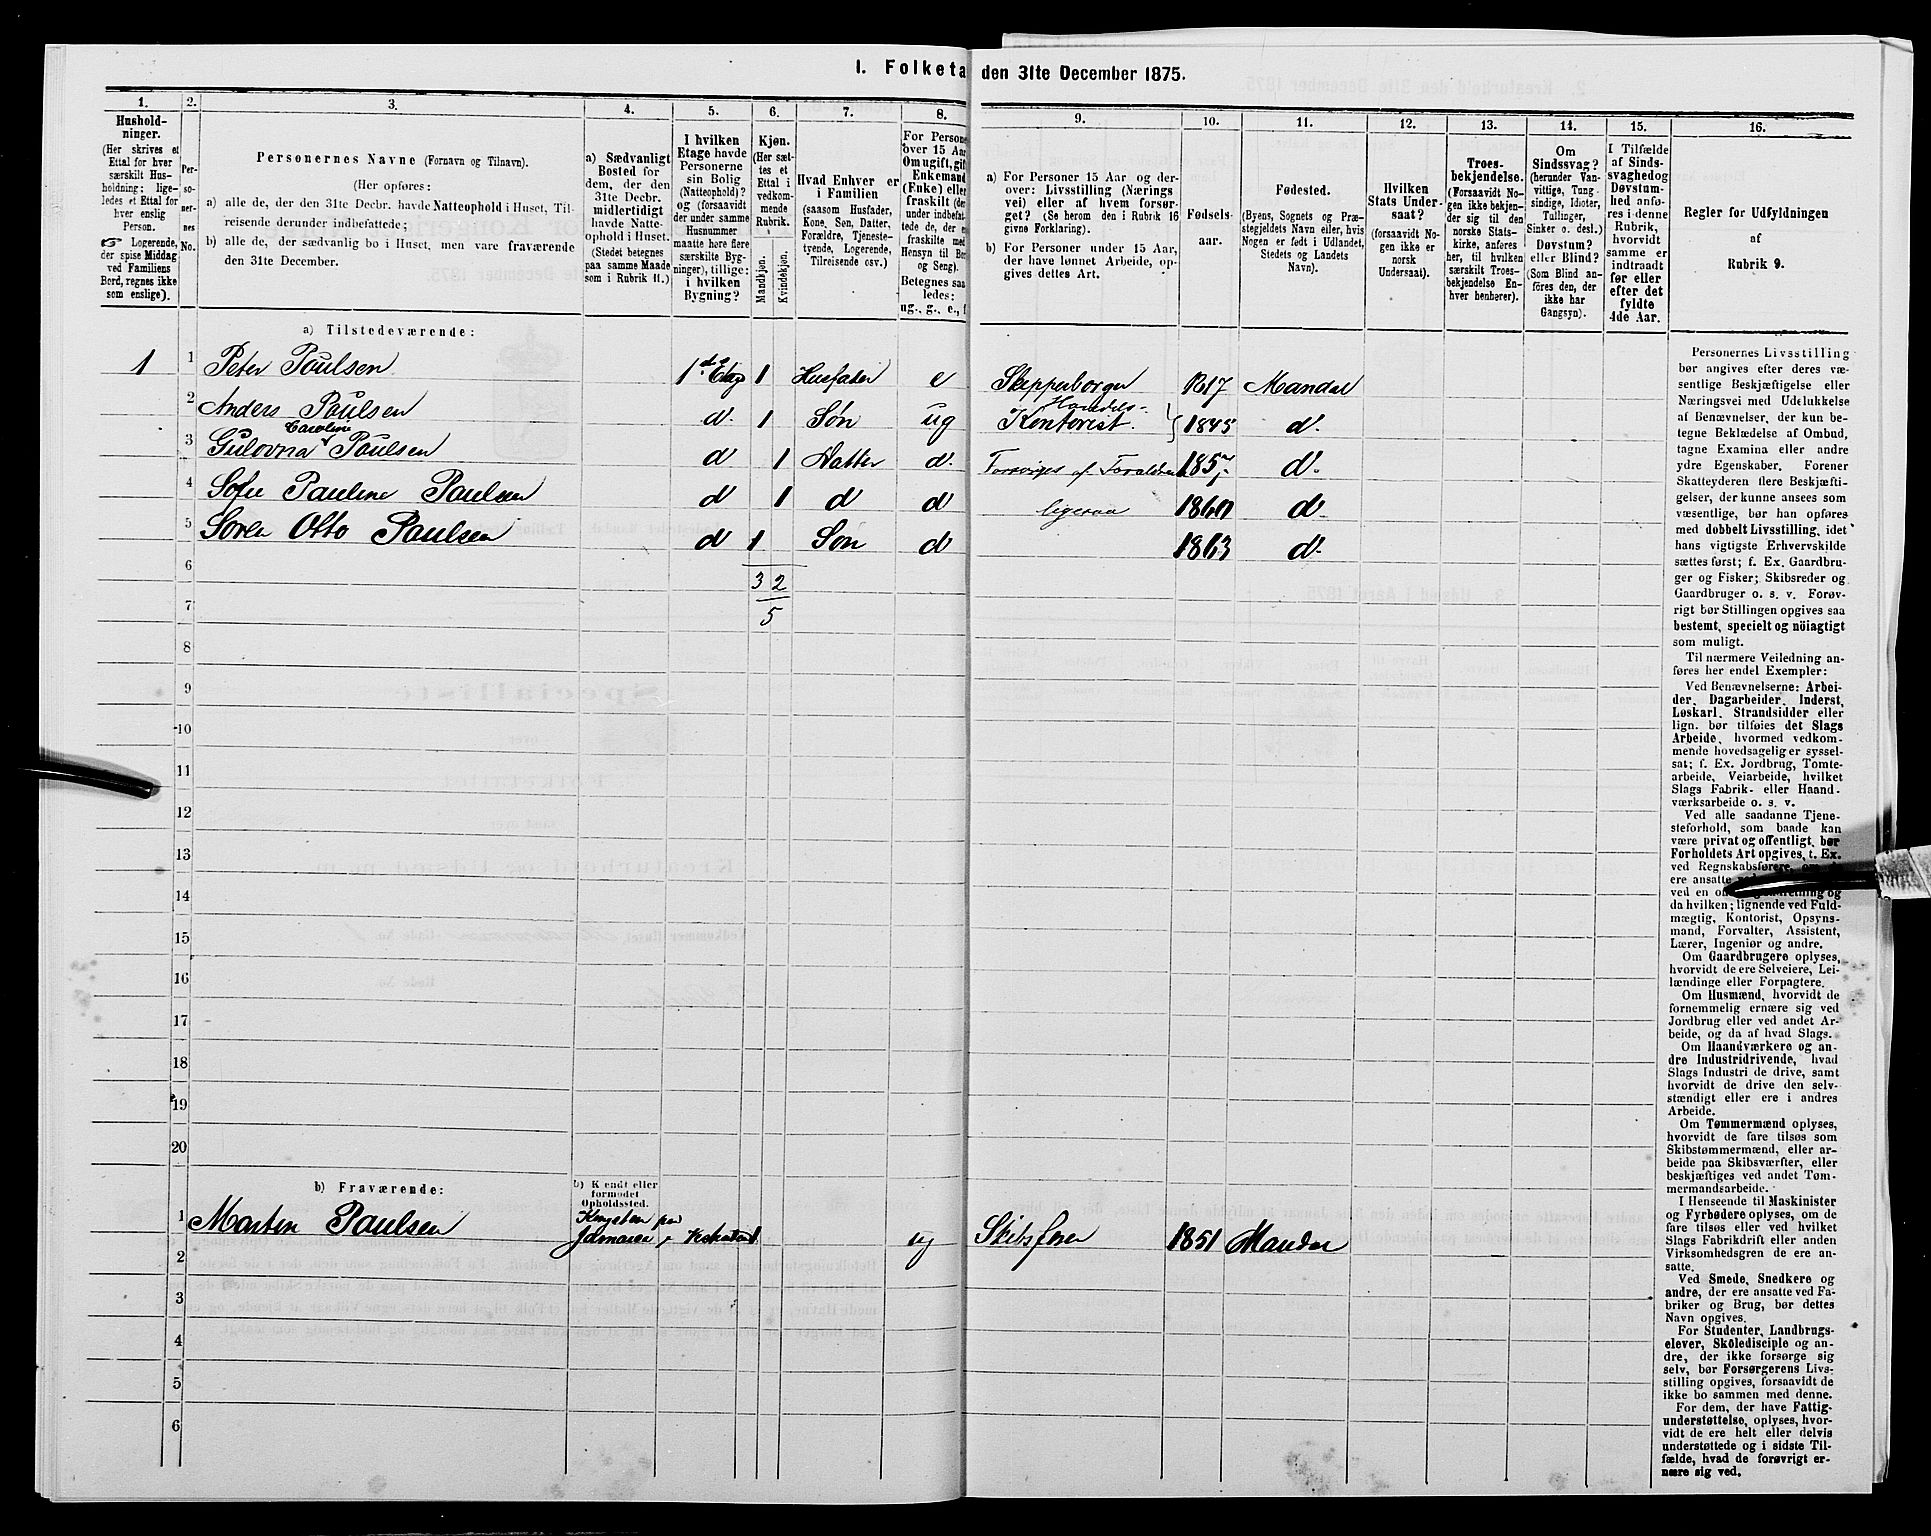 I. Folketa den 31te December 1875.
1.
2.
3.
4.
5.
6.
7.
8.
9.
10.
11.
12.
13.
14.
15.
16.
Hushold-
ninger.
(Her skrives et
Ettal for hver
særskilt Hus-
holdning; lige-
ledes et Ettal for
hver enslig
Person.
Logerende,
der spise Middag
ved Familiens
Bord, regnes ikke
som enslige).
Per-
so-
ner-
nes
No.
Personernes Navne (Fornavn og Tilnavn).
(Her opføres:
a) alle de, der den 31te Decbr. havde Natteophold i Huset, Til-
reisende derunder indbefattede;
b) alle de, der sædvanlig bo i Huset, men vare fraværende
den 31te December.
a) Sædvanligt
Bosted for
dem, der den
31te Decbr.
midlertidigt
havde Natte-
ophold i Huset.
(Stedet betegnes
paa samme Maade
som i Rubrik 11.)
I hvilken
Etage havde
Personerne
sin Bolig
(Natteophold)?
og (forsaavidt
der under samme
Husnummer
maatte høre flere
særskilte Byg-
ninger), tillige:
i hvilken
Bygning?
Kjøn.
(Her sæt-
tes et
Ettal i
vedkom-
mende
Rubrik.
Mandkjøn.
Kvindekjøn.
Hvad Enhver er
i Familien
(saasom Husfader,
Kone, Søn, Datter,
Forældre, Tjeneste-
tyende, Logerende,
Tilreisende osv.)
For Persone
over 15 Aar
Om ugift, gift
Enkemand
(Enke) eller
fraskilt (der
under indbefat-
tede de, der e
fraskilte med
Hensyn til Bor
og Seng).
Betegnes saa
ledes:
ug., g., e., f
a) For Personer 15 Aar og der-
over: Livsstilling (Nærings
vei) eller af hvem forsør-
get? (Se herom den i Rubrik 16
givne Forklaring).
b) For Personer under 15 Aar,
der have lønnet Arbeide, op-
gives dettes Art.
Fødsels-
aar.
Fødested.
(Byens, Sognets og Præ-
stegjeldets Navn eller, hvis
Nogen er født i Udlandet,
Stedets og Landets
Navn).
Hvilken
Stats Under-
saat?
(forsaavidt No-
gen ikke er
norsk
Undersaat).
Troes-
bekjendelse.
(Forsaavidt No-
gen ikke bekjen-
der sig til den
norske Stats-
kirke, anføres
her, til hvilken
særskilt Troes-
bekjendelse En-
hver henhører).
Om
Sindssvag?
(herunder Van-
vittige, Tung-
sindige, Idioter,
Tullinger,
Sinker o. desl.)
Døvstum?
eller Blind?
(Som Blind an-
føres den, der
ikke har
Gangsyn).
I Tilfælde
af Sinds-
svaghed og
Døvstum-
hed anfø-
res i denne
Rubrik,
hvorvidt
samme er
indtraadt
før eller
efter det
fyldte
4de Aar.
Regler for Udfyldningen
af
Rubrik 9.
a) Tilstedeværende:
1 1 Peter Poulsen 1ste Etag 1 Husfader e Skipperborger 1817 Mandal
2 Anders Paulsen d. 1 Søn ug Handels-
Kontorist. 1845 d.
Caroline
3 Gulovna Paulsen d 1 Datter d. Forsørges af Forældre 1857 d.
4 Sofie Pauline Paulsen d 1 d d ligesaa 1860 d.
5 Søren Otto Paulsen d 1 Søn d 1863 d.
6
3 2
7
5
8
9
10
11
12
13
14
15
16
17
18
19
20
b) Fraværende:
b) Kendt eller
formodet
Opholdssted.
1 Martin Paulsen Kingston paa
Jamaica ug Skibsfører 1851 Mandal
2
3
4
5
6
Personernes Livsstilling
bør angives efter deres væ-
sentlige Beskjæftigelse eller
Næringsvei med Udelukkelse
af Benævnelser, der kun be-
tegne Beklædelse af Ombud,
tagne Examina eller andre
ydre Egenskaber. Forener
Skatteyderen flere Beskjæfti-
gelser, der kunne ansees som
væsentlige, bør han opføres
med dobbelt Livsstilling, idet
hans vigtigste Erhvervskilde
sættes først; f. Ex. Gaardbru-
ger og Fisker; Skibsreder og
Gaardbruger o. s. v. Forøv-
rigt bør Stillingen opgives saa
bestemt, specielt og nöiagtigt
som muligt.
Til nærmere Veiledning an-
føres her endel Exempler:
Ved Benævnelserne: Arbei-
der, Dagarbeider, Inderst,
Løskarl, Strandsidder eller
lign. bør tilføies det Slags
Arbeide, hvormed vedkom-
mende hovedsagelig er syssel-
sat; f. Ex. Jordbrug, Tomte-
arbeide, Veiarbeide, hvilket
Slags Fabrik- eller Haand-
værksarbeide o. s. v.
Ved alle saadanne Tjene-
steforhold, som baade kan
være privat og offentligt, bør
Forholdets Art opgives, t. Ex.
ved Regnskabsførere,
ere ansatte
ved en
da hvilken; lignende ved Fuld-
mægtig, Kontorist, Opsyns-
mand, Forvalter, Assistent,
Lærer, Ingeniør og andre.
Om Gaardbrugere oplyses,
hvorvidt de ere Selveiere, Lei-
lændinge eller Forpagtere.
Om Husmænd, hvorvidt de
fornemmelig ernære sig ved
Jordbrug eller ved andet Ar-
beide, og da af hvad Slags.
Om Haandværkere og an-
dre Industridrivende, hvad
Slags Industri de drive, samt
hvorvidt de drive den selv-
stændigt eller ere i andres
Arbeide.
Om Tømmermænd oplyses,
hvorvidt de fare tilsøs som
Skibstømmermænd, eller ar-
beide paa Skibsværfter, eller
beskjæftiges ved andet Tøm-
mermandsarbeide.
I Henseende til Maskinister
og Fyrbødere oplyses, om de
fare tilsøs eller ved hvilket
Slags Fabrikdrift eller anden
Virksomhedsgren de ere an-
satte.
Ved Smede, Snedkere og
andre, der ere ansatte ved Fa-
briker og Brug, bør dettes
Navn opgives.
For Studenter, Landbrugs-
elever, Skôledisciple og an-
dre, der ikke forsørge sig
selv, bør Forsørgerens Livs-
stilling opgives, forsaavidt de
ikke bo sammen med denne.
For dem, der have Fattig-
understøttelse, oplyses, hvor-
vidt de ere helt eller delvis
understøttede og i sidste Til-
fælde, hvad de forøvrigt er-
nære sig ved.